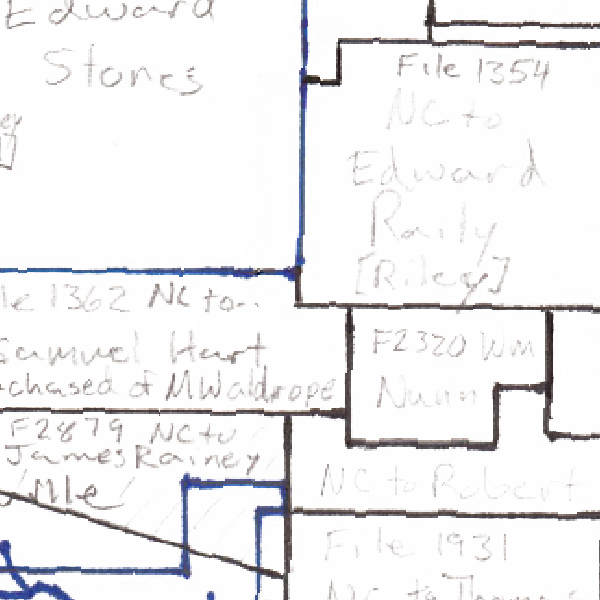 Edward
Stones
File 1354
NC to
Edward
Raily
[Riley]
le 1362 NC to..
Samuel Hart
chased of MWaldrope
F2320 Wm
Nunn
F2879 NC to
James Rainey
NC to Robert
File 1931
NC to Thomas